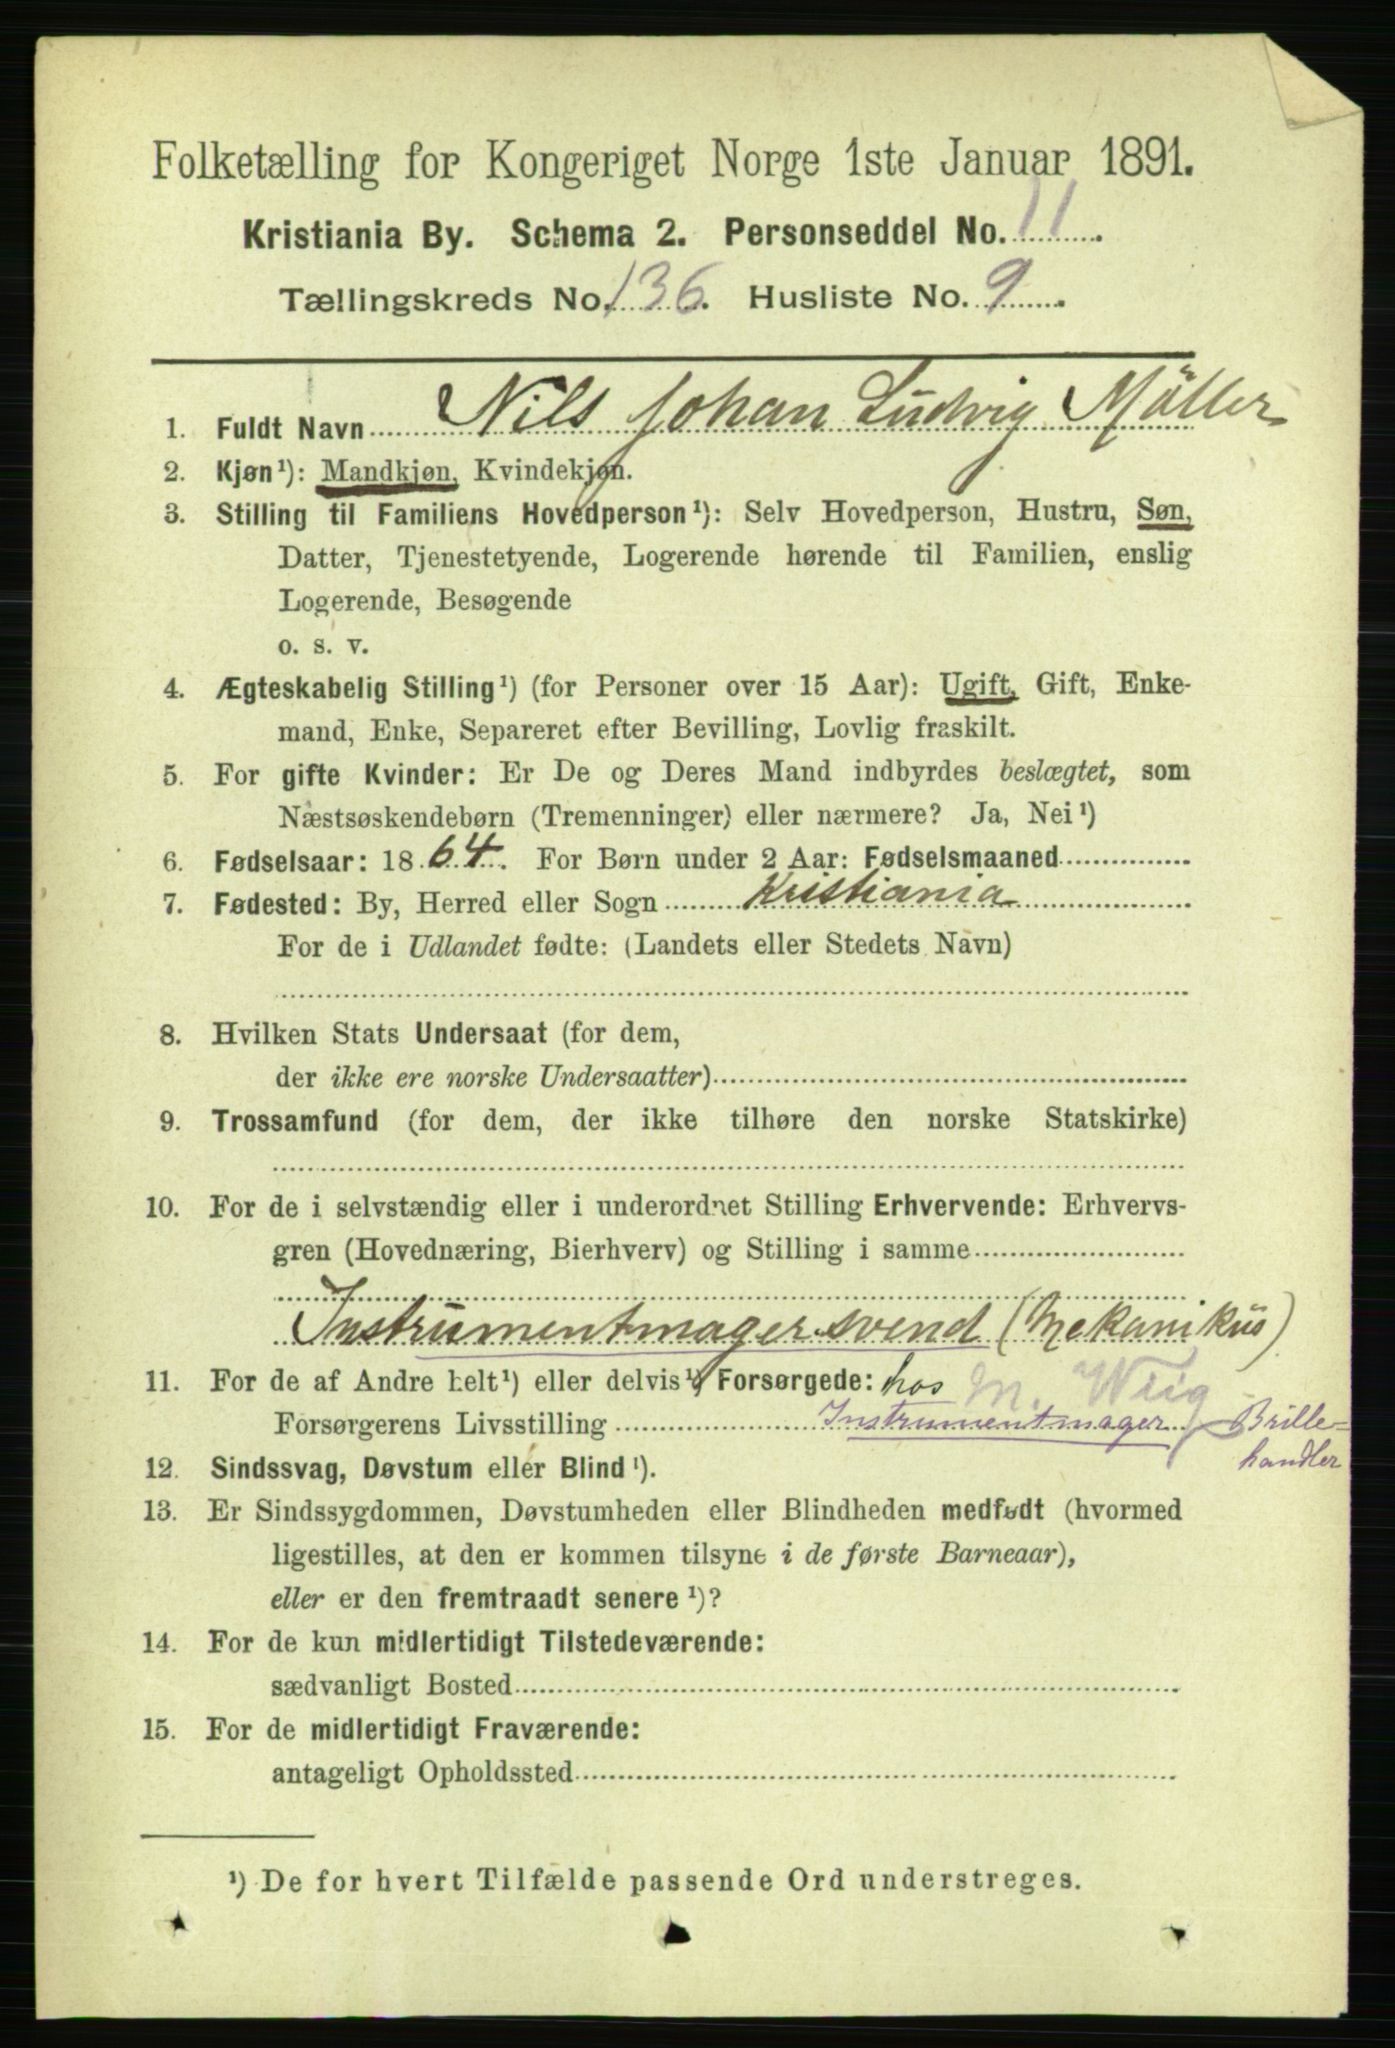 Folketælling for Kongeriget Norge 1ste Januar 1891.
Kristiania By. Schema 2. Personseddel No. 11.
Tællingskreds No. 136. Husliste No. 9.
1. Fuldt Navn Nils Johan Ludvig Möller
2. Kjøn¹): Mandkjøn, Kvindekjøn.
3. Stilling til Familiens Hovedperson¹): Selv Hovedperson, Hustru, Søn,
Datter, Tjenestetyende, Logerende hørende til Familien, enslig
Logerende, Besøgende
o. s. v.
4. Ægteskabelig Stilling¹) (for Personer over 15 Aar): Ugift, Gift, Enke-
mand, Enke, Separeret efter Bevilling, Lovlig fraskilt.
5. For gifte Kvinder: Er De og Deres Mand indbyrdes beslægtet, som
Næstsøskendebørn (Tremenninger) eller nærmere? Ja, Nei¹)
6. Fødselsaar: 1864. For Børn under 2 Aar: Fødselsmaaned
7. Fødested: By, Herred eller Sogn Kristiania
For de i Udlandet fødte: (Landets eller Stedets Navn)
8. Hvilken Stats Undersaat (for dem,
der ikke ere norske Undersaatter)
9. Trossamfund (for dem, der ikke tilhøre den norske Statskirke)
10. For de i selvstændig eller i underordnet Stilling Erhvervende: Erhvervs-
gren (Hovednæring, Bierhverv) og Stilling i samme
Instrumentmagersvend (Mekanikus)
11. For de af Andre helt¹) eller delvis¹) Forsørgede: hos M. Wiig
Forsørgerens Livsstilling Instrumentmager Brille-
handler
12. Sindssvag, Døvstum eller Blind¹).
13. Er Sindssygdommen, Døvstumheden eller Blindheden medfødt (hvormed
ligestilles, at den er kommen tilsyne i de første Barneaar),
eller er den fremtraadt senere¹)?
14. For de kun midlertidigt Tilstedeværende:
sædvanligt Bosted
15. For de midlertidigt Fraværende:
antageligt Opholdssted
¹) De for hvert Tilfælde passende Ord understreges.